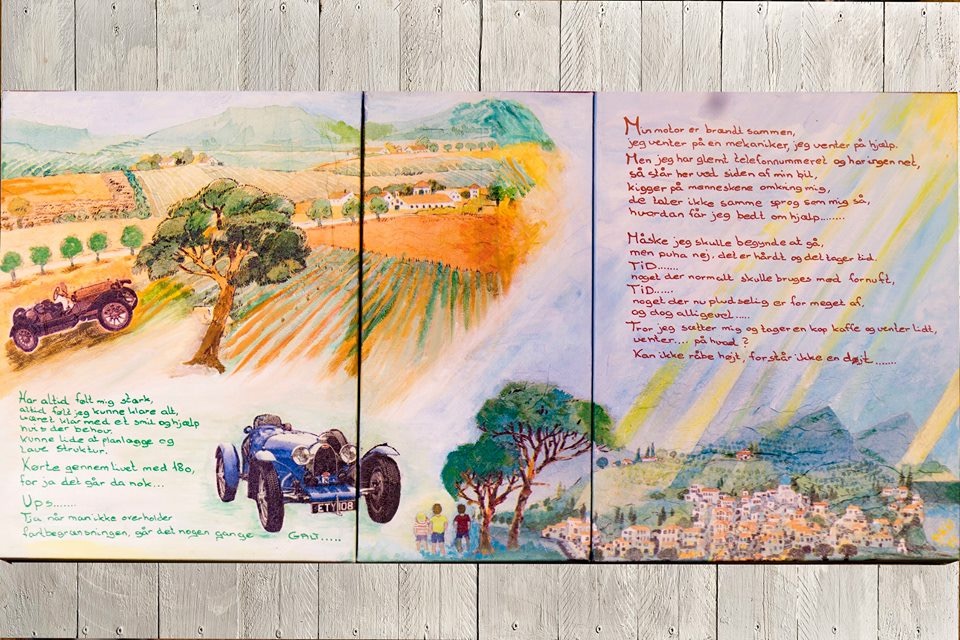 Har altid følt mig stark,
altid følt jeg kunne klare alt,
været klar med et smil og hjælp
hvis der behov.
Kunne lide at planlægge og
lave struktur.
Kørte gennem livet med 180,
for ja det går da nok...
Ups.......
Tja når man ikke overholder
fartbegrænsningen, går det nogen gange GALT.....
ETY 108
Min motor er brændt sammen,
jeg venter på en mekaniker, jeg venter på hjælp.
Men jeg har glemt telefonnummeret og har ingen net,
så står her ved siden af min bil,
kigger på menneskene omkring mig,
de taler ikke samme sprog som mig så,
hvordan får jeg bedt om hjælp........
Måske jeg skulle begynde at gå,
men puha nej, det er hårdt og det tager tid.
TiD.......
noget der normalt skulle bruges med fornuft,
TiD......
noget der nu pludselig er for meget af.
og dog alligevel.....
Tror jeg sætter mig og tager en kop kaffe og venter lidt,
venter.... på hvad?
Kan ikke råbe højt, forstår ikke en døjt.......